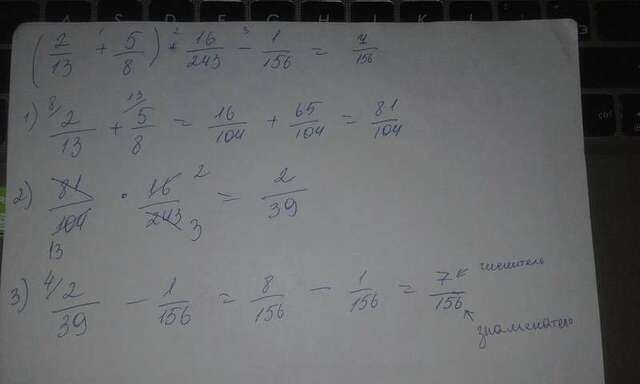 (2/13 +¹ 5/8) ·² 16/243 -³ 1/156 = 7/156
1) ⁸/ 2/13 + ¹³/ 5/8 = 16/104 + 65/104 = 81/104
2) 81/104 · 16/243 = 2/39
13 3 2
3) ⁴/ 2/39 - 1/156 = 8/156 - 1/156 = 7/156
числитель
знаменатель